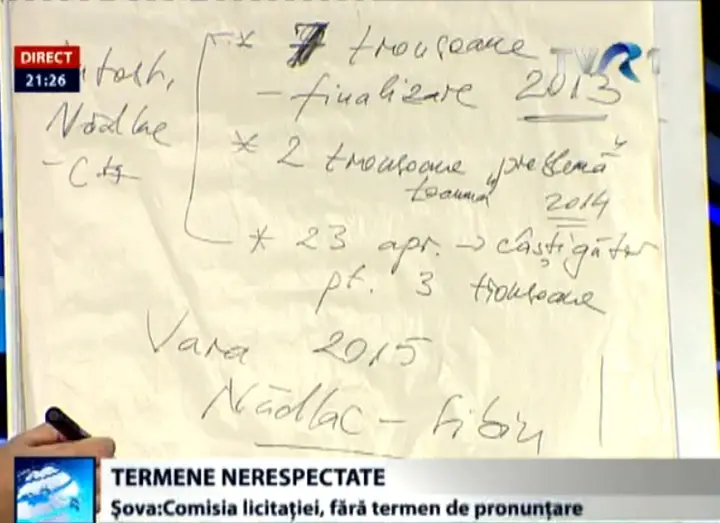 DIRECT
21:26
TVR 1
Autostr.
Nădlac
- Cța
* 7 tronsoane
- finalizare 2013
* 2 tronsoane "problemă"
toamna 2014
* 23 apr. → câștigător
pt. 3 tronsoane
Vara 2015
Nădlac - Sibiu
TERMENE NERESPECTATE
Șova:Comisia licitației, fără termen de pronunțare